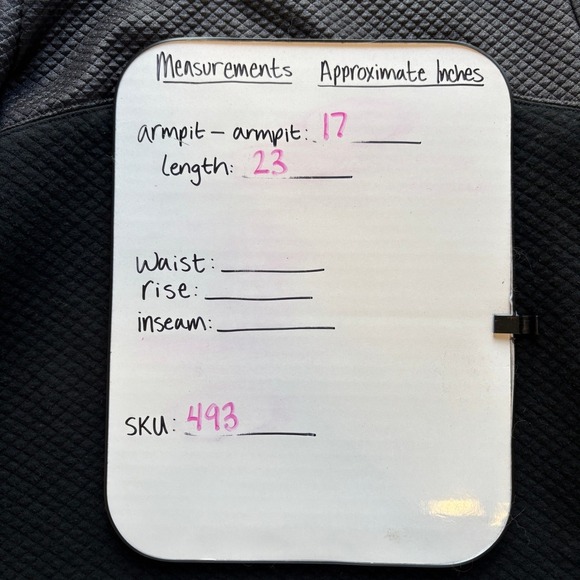 Measurements Approximate Inches
armpit - armpit: 17
length: 23
waist:
rise:
inseam:
SKU: 493